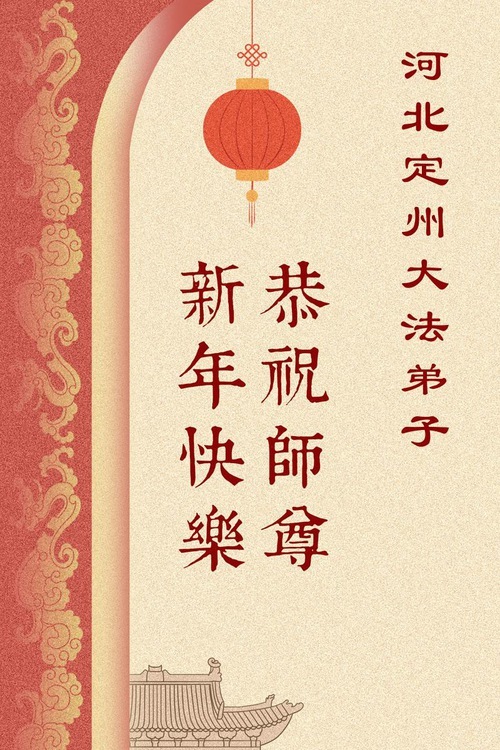 河北定州大法弟子
恭祝師尊
新年快樂